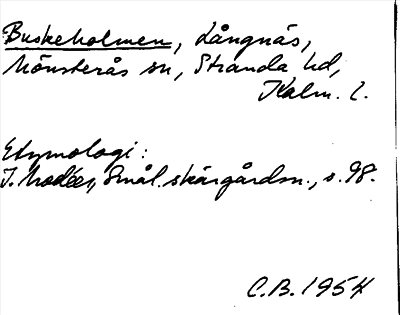 Buskeholmen, Långnäs,
Mönsterås sn, Stranda hd,
Kalm. l.
Etymologi:
I. Modéer, Smål. skärgårdsn., s. 98.
C.B. 1954